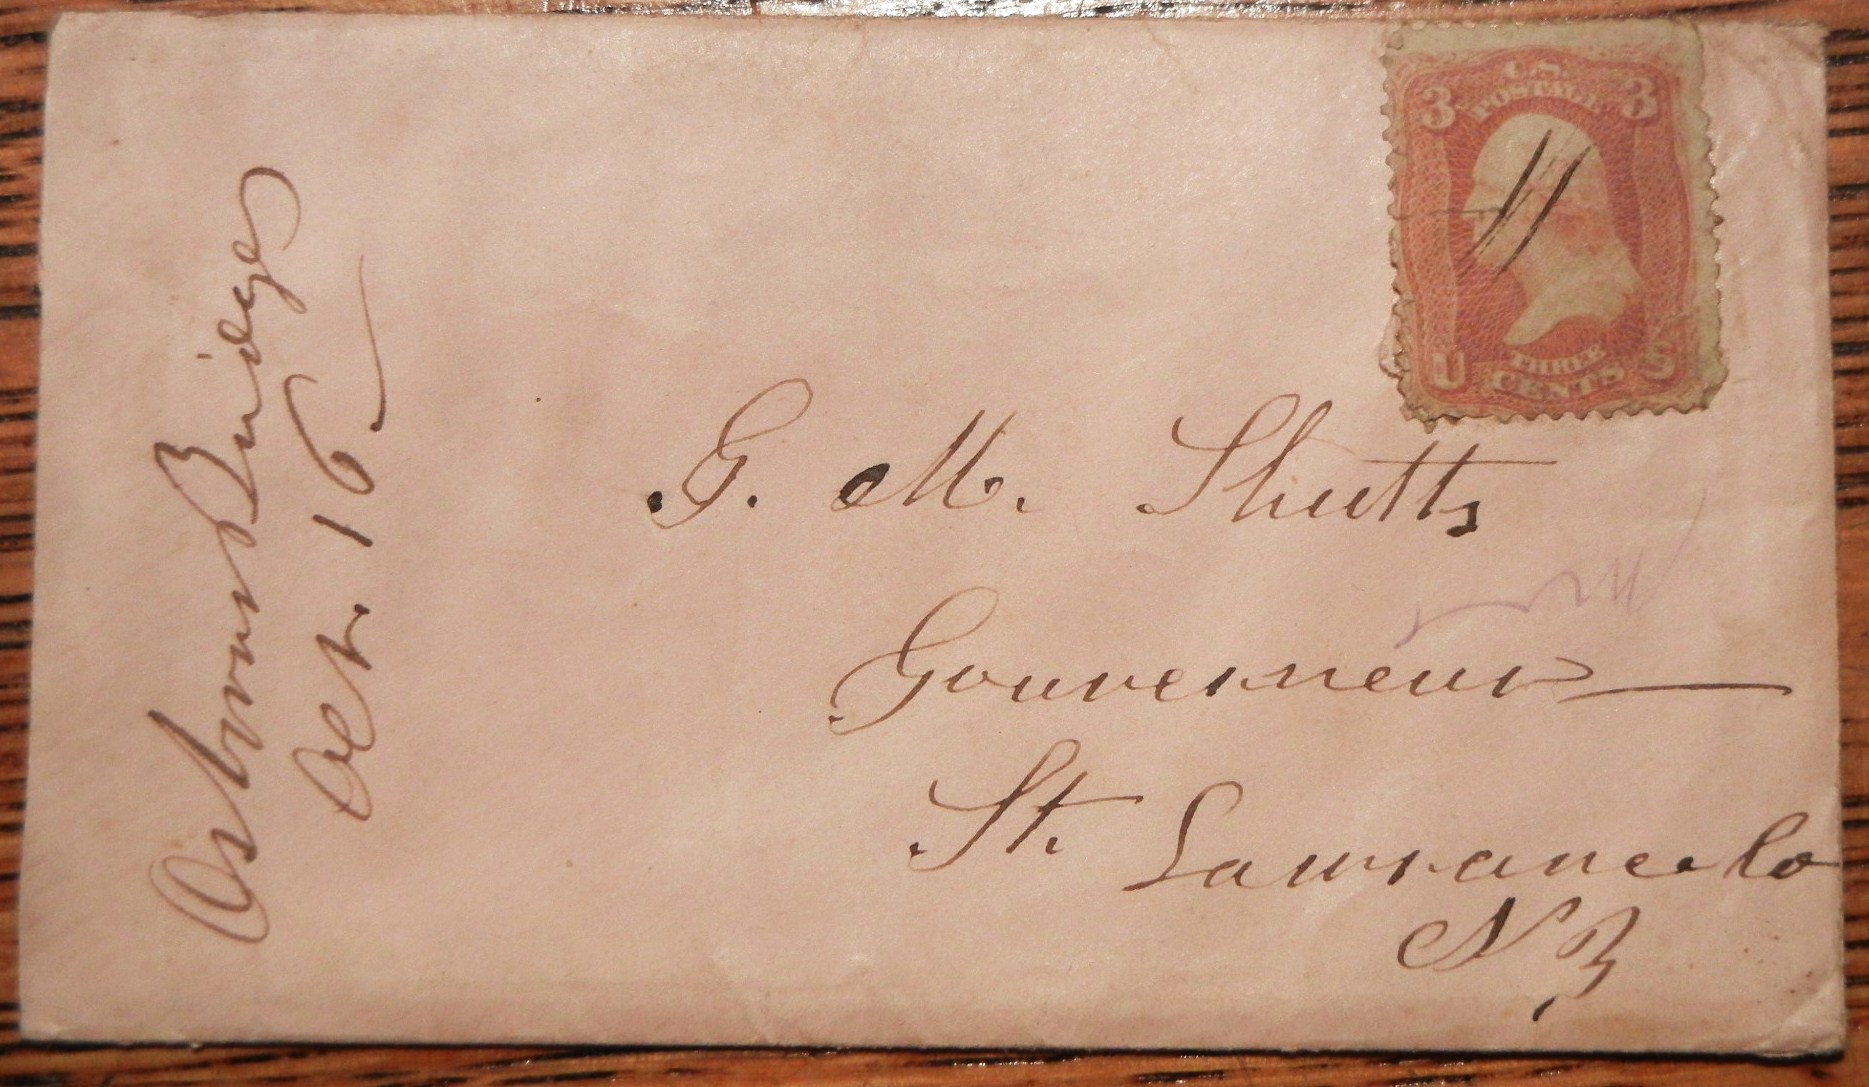 Osborn Bridge
Oct. 16
U.S.
POSTAGE
3 3
U S
THREE
CENTS
G. M. Shutts
Gouverneur
St. Lawrance Co
N Y